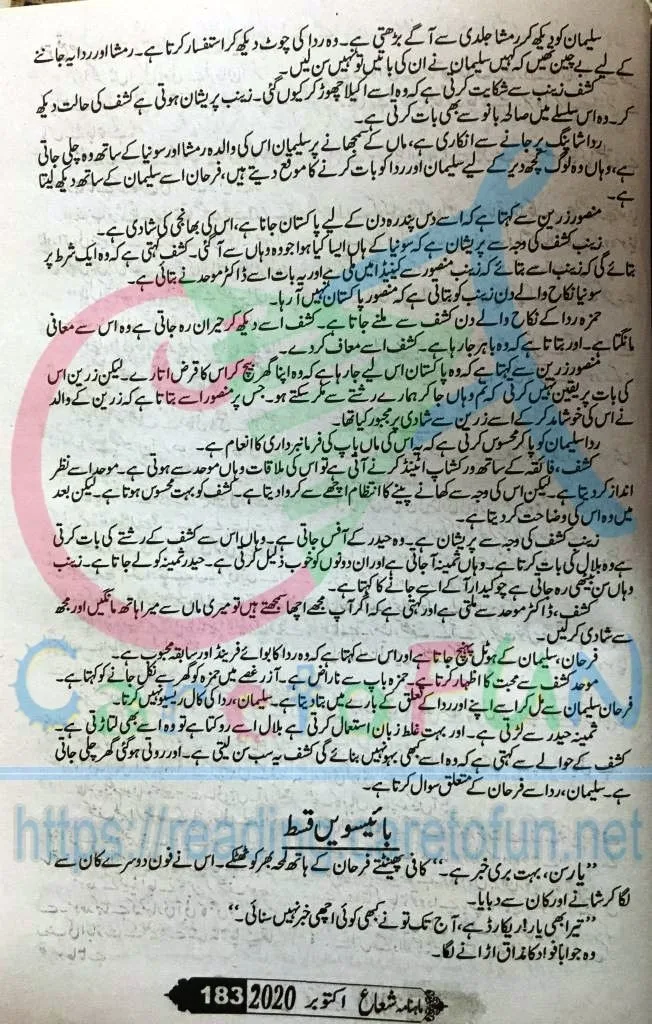 سلیمان کو دیکھ کر رمشا جلدی سے آگے بڑھتی ہے۔ وہ ردا کی چوٹ دیکھ کر استفسار کرتا ہے۔ رمشا اور ردا یہ جاننے
کے لیے بے چین تھیں کہ کہیں سلیمان نے ان کی باتیں تو نہیں سن لیں۔
کشف زینب سے شکایت کرتی ہے کہ وہ اسے اکیلا چھوڑ کر کیوں گئی۔ زینب پریشان ہوتی ہے کشف کی حالت دیکھ
کر۔ وہ اس سلسلے میں صالحہ بانو سے بھی بات کرتی ہے۔
ردا شاپنگ پر جانے سے انکاری ہے، ماں کے سمجھانے پر سلیمان اس کی والدہ رمشا اور سونیا کے ساتھ وہ چلی جاتی
ہے، وہاں وہ لوگ کچھ دیر کے لیے سلیمان اور ردا کو بات کرنے کا موقع دیتے ہیں، فرحان اسے سلیمان کے ساتھ دیکھ لیتا
ہے۔
منصور زرین سے کہتا ہے کہ اسے دس پندرہ دن کے لیے پاکستان جانا ہے، اس کی بھانجی کی شادی ہے۔
زینب کشف کی وجہ سے پریشان ہے کہ سونیا کے ہاں ایسا کیا ہوا جو وہ وہاں سے آ گئی۔ کشف کہتی ہے کہ وہ ایک شرط پر
بتائے گی کہ زینب اسے بتائے کہ زینب منصور سے کینیڈا میں ملی ہے اور یہ بات اسے ڈاکٹر موحد نے بتائی ہے۔
سونیا نکاح والے دن زینب کو بتاتی ہے کہ منصور پاکستان نہیں آ رہا۔
حمزہ ردا کے نکاح والے دن کشف سے ملنے جاتا ہے۔ کشف اسے دیکھ کر حیران رہ جاتی ہے وہ اس سے معافی
مانگتا ہے۔ اور بتاتا ہے کہ وہ باہر جا رہا ہے۔ کشف اسے معاف کر دے۔
منصور زرین سے کہتا ہے کہ وہ پاکستان اس لیے جا رہا ہے کہ وہ اپنا گھر بیچ کر اس کا قرض اتارے۔ لیکن زرین اس
کی بات پر یقین نہیں کرتی کہ تم وہاں جا کر ہمارے رشتے سے مکر سکتے ہو۔ جس پر منصور اسے بتاتا ہے کہ زرین کے والد
نے اس کی خوشامد کر کے اسے زرین سے شادی پر مجبور کیا تھا۔
ردا سلیمان کو پا کر محسوس کرتی ہے کہ یہ اس کی ماں باپ کی فرمانبرداری کا انعام ہے۔
کشف، فائقہ کے ساتھ ورکشاپ اٹینڈ کرنے آتی ہے تو اس کی ملاقات وہاں موحد سے ہوتی ہے۔ موحد اسے نظر
انداز کر دیتا ہے۔ لیکن اس کی وجہ سے کھانے پینے کا انتظام اچھے سے کروا دیتا ہے۔ کشف کو بہت محسوس ہوتا ہے۔ لیکن بعد
میں وہ اس کی وضاحت کر دیتا ہے۔
زینب کشف کی وجہ سے پریشان ہے۔ وہ حیدر کے آفس جاتی ہے۔ وہاں اس سے کشف کے رشتے کی بات کرتی
ہے وہ بلال کی بات کرتا ہے۔ وہاں ثمینہ آ جاتی ہے اور ان دونوں کو خوب ذلیل کرتی ہے۔ حیدر ثمینہ کو لے جاتا ہے۔ زینب
وہاں سن بیٹھی رہ جاتی ہے چوکیدار آ کے اسے جانے کا کہتا ہے۔
کشف، ڈاکٹر موحد سے ملتی ہے اور کہتی ہے کہ اگر آپ مجھے اچھا سمجھتے ہیں تو میری ماں سے میرا ہاتھ مانگیں اور مجھ
سے شادی کر لیں۔
فرحان، سلیمان کے ہوٹل پہنچ جاتا ہے اور اس سے کہتا ہے کہ وہ ردا کا بوائے فرینڈ اور سابقہ محبوب ہے۔
موحد کشف سے محبت کا اظہار کرتا ہے۔ حمزہ باپ سے ناراض ہے۔ آزر غصے میں حمزہ کو گھر سے نکل جانے کو کہتا ہے۔
فرحان سلیمان سے مل کر اسے اپنے اور ردا کے تعلق کے بارے میں بتا دیتا ہے۔ سلیمان، ردا کی کال ریسیو نہیں کرتا۔
ثمینہ حیدر سے لڑتی ہے۔ اور بہت غلط زبان استعمال کرتی ہے بلال اسے روکتا ہے تو وہ اسے بھی لتاڑتی ہے۔
کشف کے حوالے سے کہتی ہے کہ وہ اسے کبھی بہو نہیں بنائے گی کشف یہ سب سن لیتی ہے۔ اور روتی ہوئی گھر چلی جاتی
ہے۔ سلیمان، ردا سے فرحان کے متعلق سوال کرتا ہے۔
بائیسویں قسط
”یار سن، بہت بری خبر ہے۔“ کافی پھینٹتے فرحان کے ہاتھ لمحہ بھر کو ٹھٹکے۔ اس نے فون دوسرے کان سے
لگا کر شانے اور کان سے دبایا۔
”تیرا بھی یار! ریکارڈ ہے، آج تک تو نے کبھی کوئی اچھی خبر نہیں سنائی۔“
وہ جواباً فواد کا مذاق اڑانے لگا۔
ماہنامہ شعاع اکتوبر 2020 183
CaretoFUN
https://reading.caretofun.net